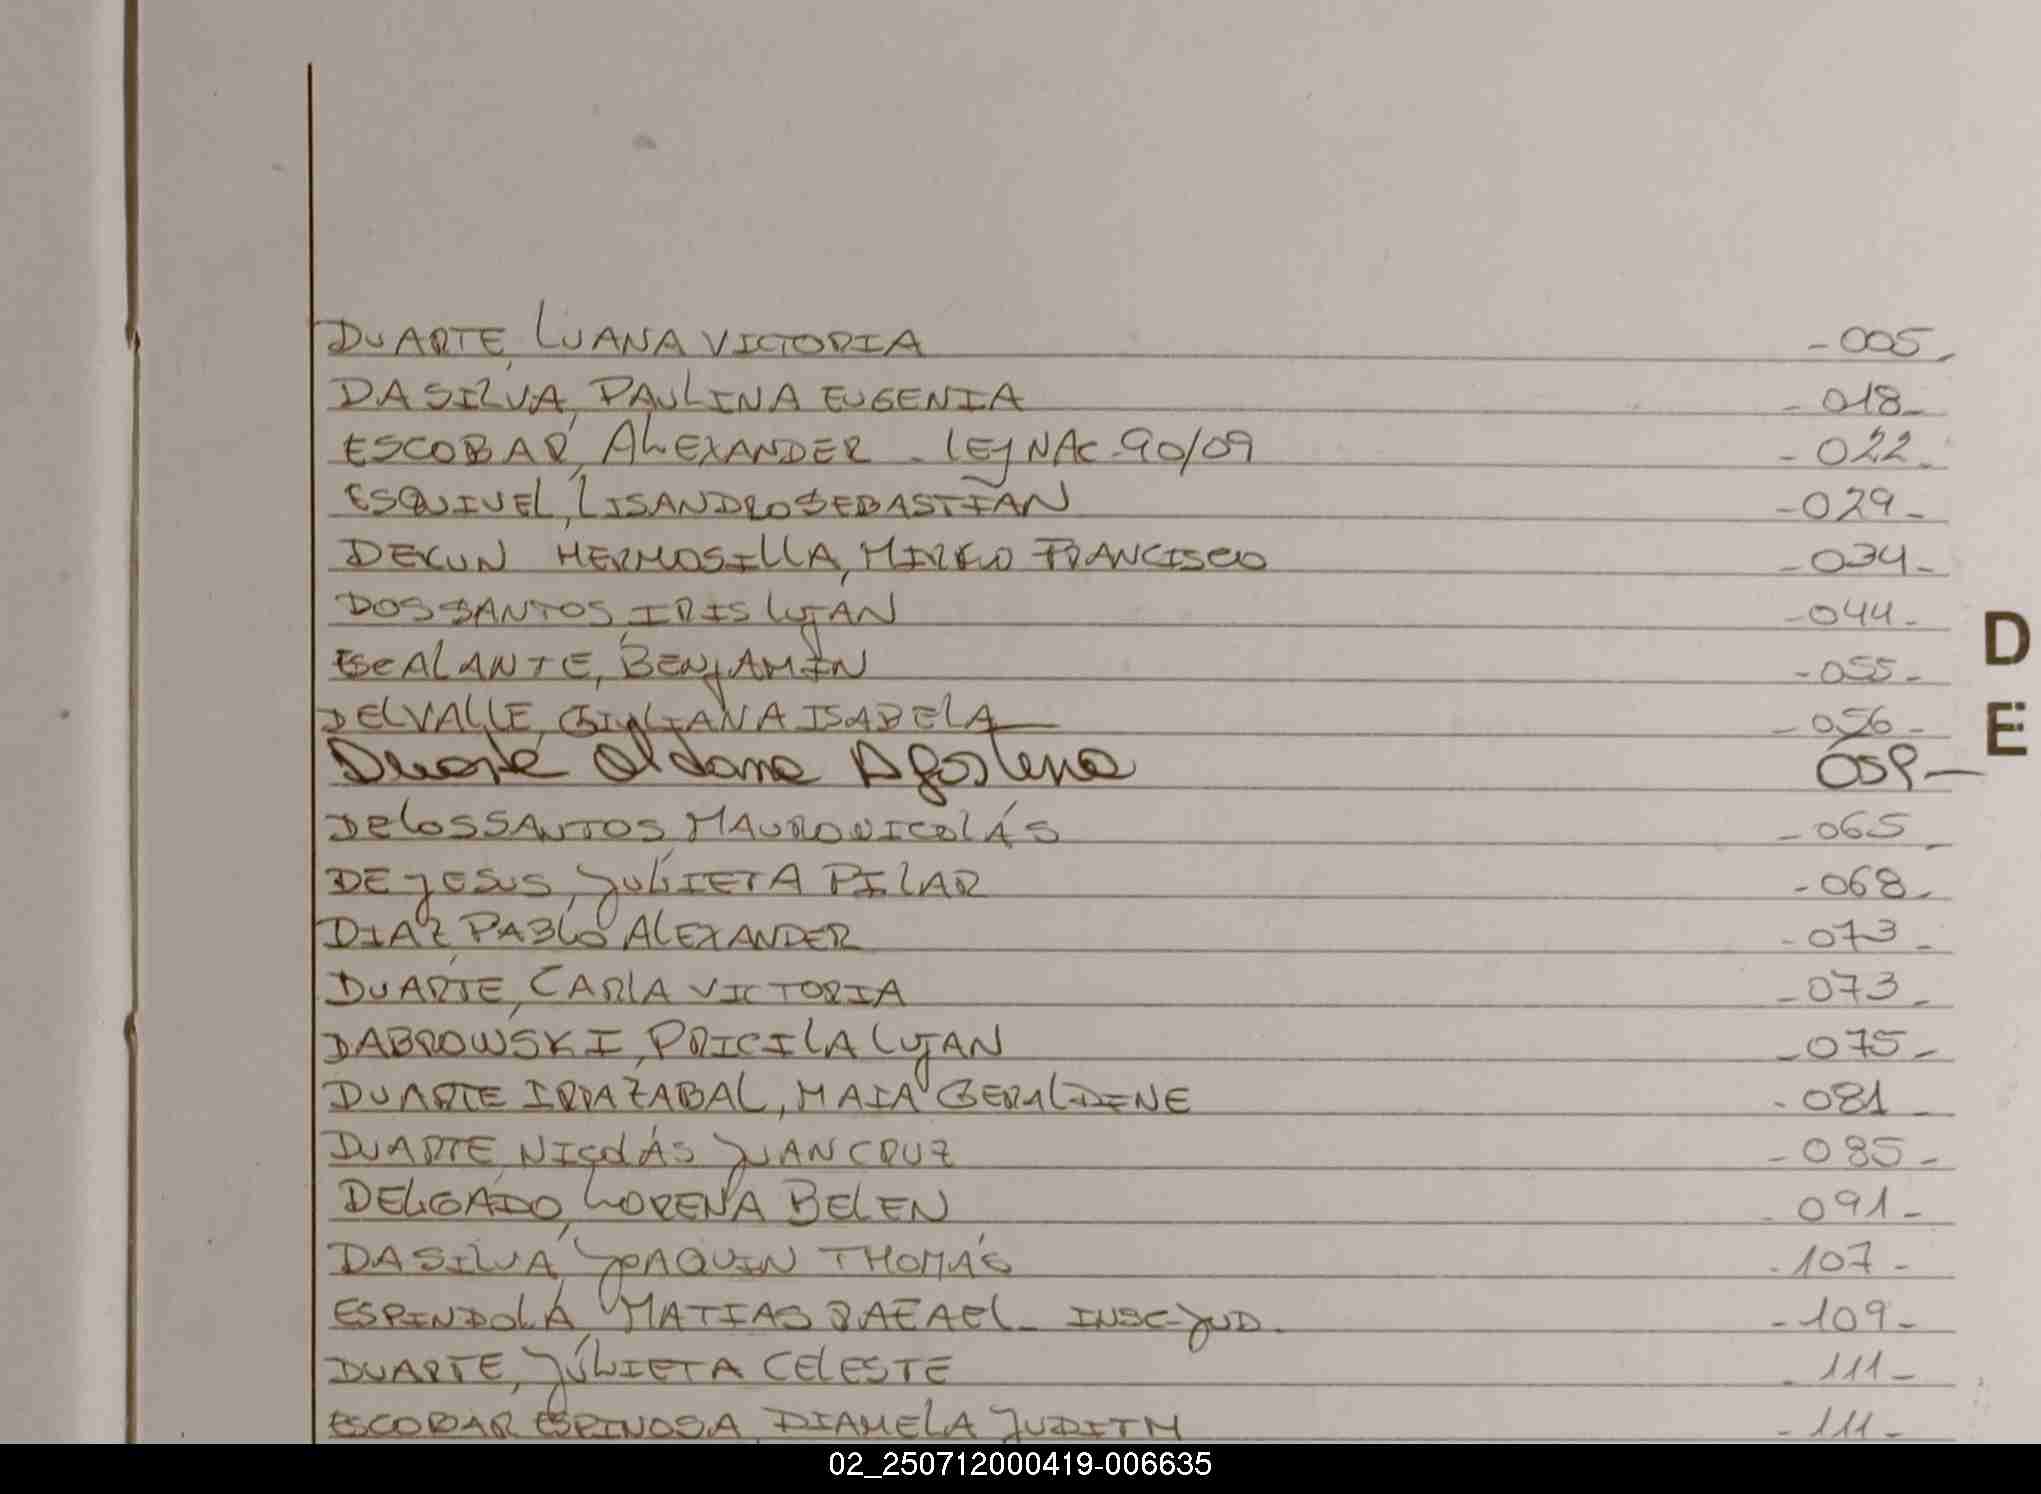 DUARTE, LUANA VICTORIA -005-
DASILVA, PAULINA EUGENIA -018-
ESCOBAR, ALEXANDER - LEY NAC-90/09 -022-
ESQUIVEL, LISANDRO SEBASTIAN -029-
DEKUN HERMOSILLA, MIRKO FRANCISCO -034-
DOS SANTOS, IRIS LUJAN -044-
ESCALANTE, BENJAMIN -055-
D
DELVALLE, GIULIANA ISABELA -056-
E
Duarte Aldana Agostina 059-
DELOSSANTOS, MAURO NICOLÁS -065-
DE JESUS, JULIETA PILAR -068-
DIAZ, PABLO ALEXANDER -073-
DUARTE, CARLA VICTORIA -073-
DABROWSKI, PRICILA LUJAN -075-
DUARTE IRRAZABAL, MAIA GERALDINE -081-
DUARTE, NICOLÁS JUAN CRUZ -085-
DELGADO, LORENA BELEN -091-
DASILVA, JOAQUIN THOMÁS -107-
ESPINDOLA, MATIAS RAFAEL - INSC-JUD. -109-
DUARTE, JULIETA CELESTE -111-
ESCOBAR ESPINOSA, DIAMELA JUDITH -111-
02_250712000419-006635